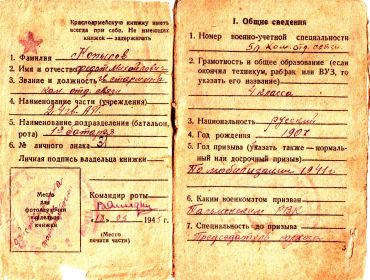 Красноармейскую книжку иметь
всегда при себе. Не имеющих
книжек — задерживать
1. Фамилия Копыров
2. Имя и отчество
3. Звание и должность ст.
ком. отд. связи
4. Наименование части (учреждения)
5. Наименование подразделения (батальон,
рота) 1я батарея
6. № личного знака
Личная подпись владельца книжки
Место
для
фотокарточки
владельца
книжки
Командир роты
1945 г.
(Место
печати части)
I. Общие сведения
1. Номер военно-учетной специальности
5 ком. отд. связи
2. Грамотность и общее образование (если
окончил техникум, рабфак или ВУЗ, то
указать его название)
4 класса
3. Национальность русский
4. Год рождения 1907
5. Год призыва (указать также — нормаль-
ный или досрочный призыв)
По мобилизации 1941 г.
6. Каким военкоматом призван
РВК
7. Специальность до призыва
Председатель колхоза